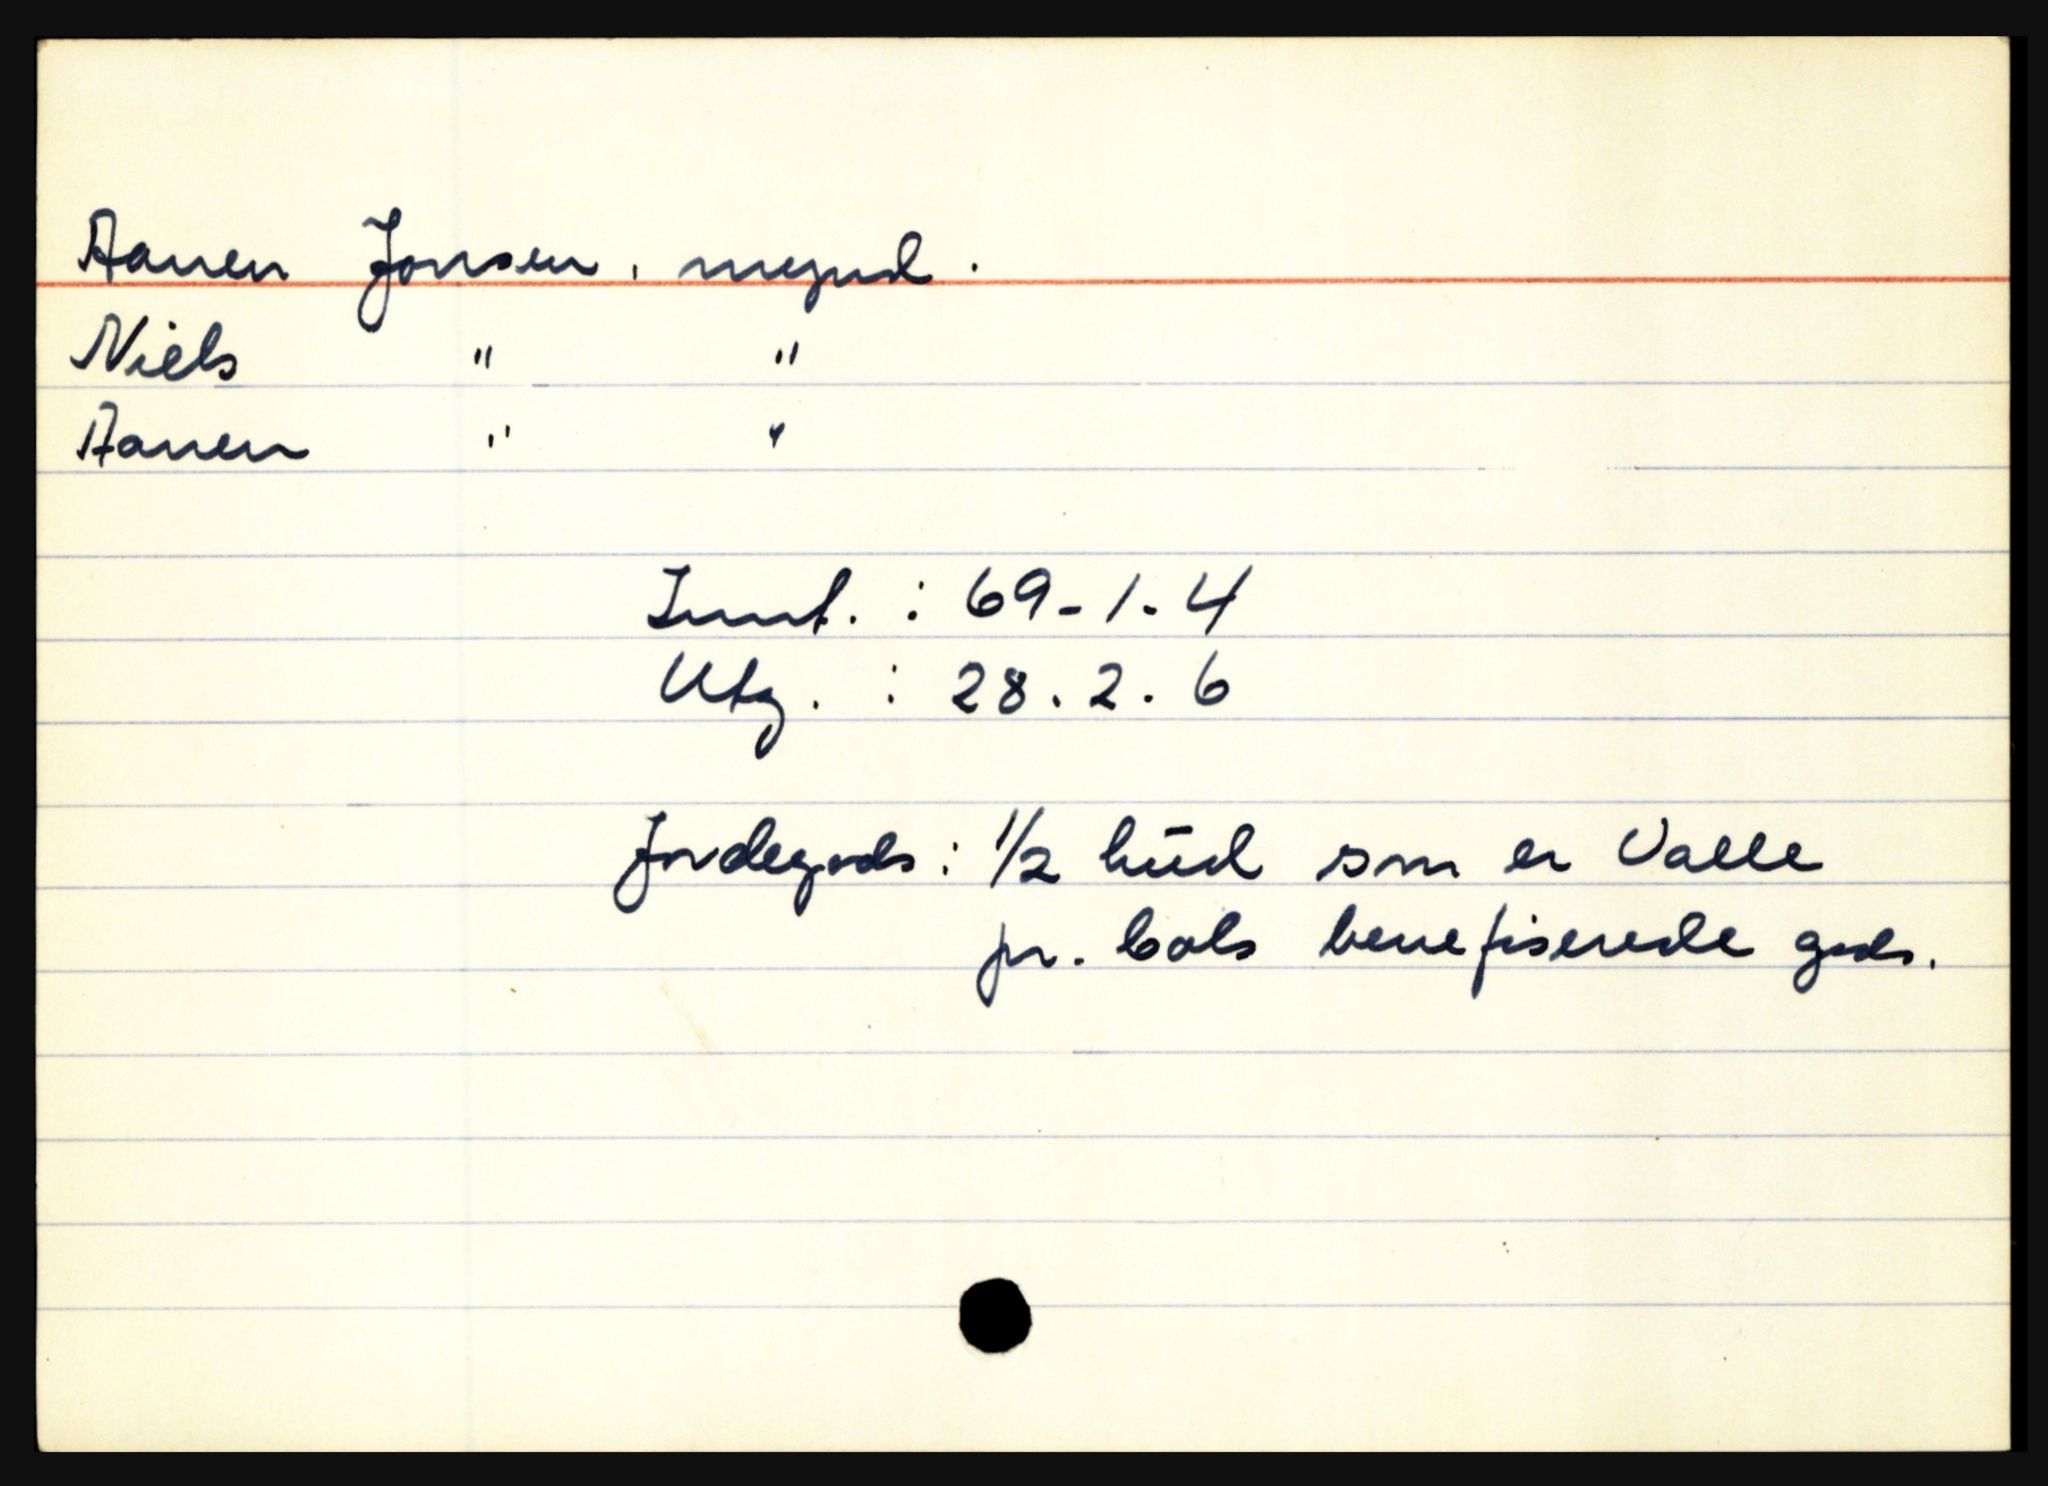 Aanen Jonsen, mynd.
Niels " "
Aanen " "
Innt. : 69-1-4
Utg. : 28.2.6
Jordegods: 1/2 hud som er Valle
pr. bols benefiserede gods.